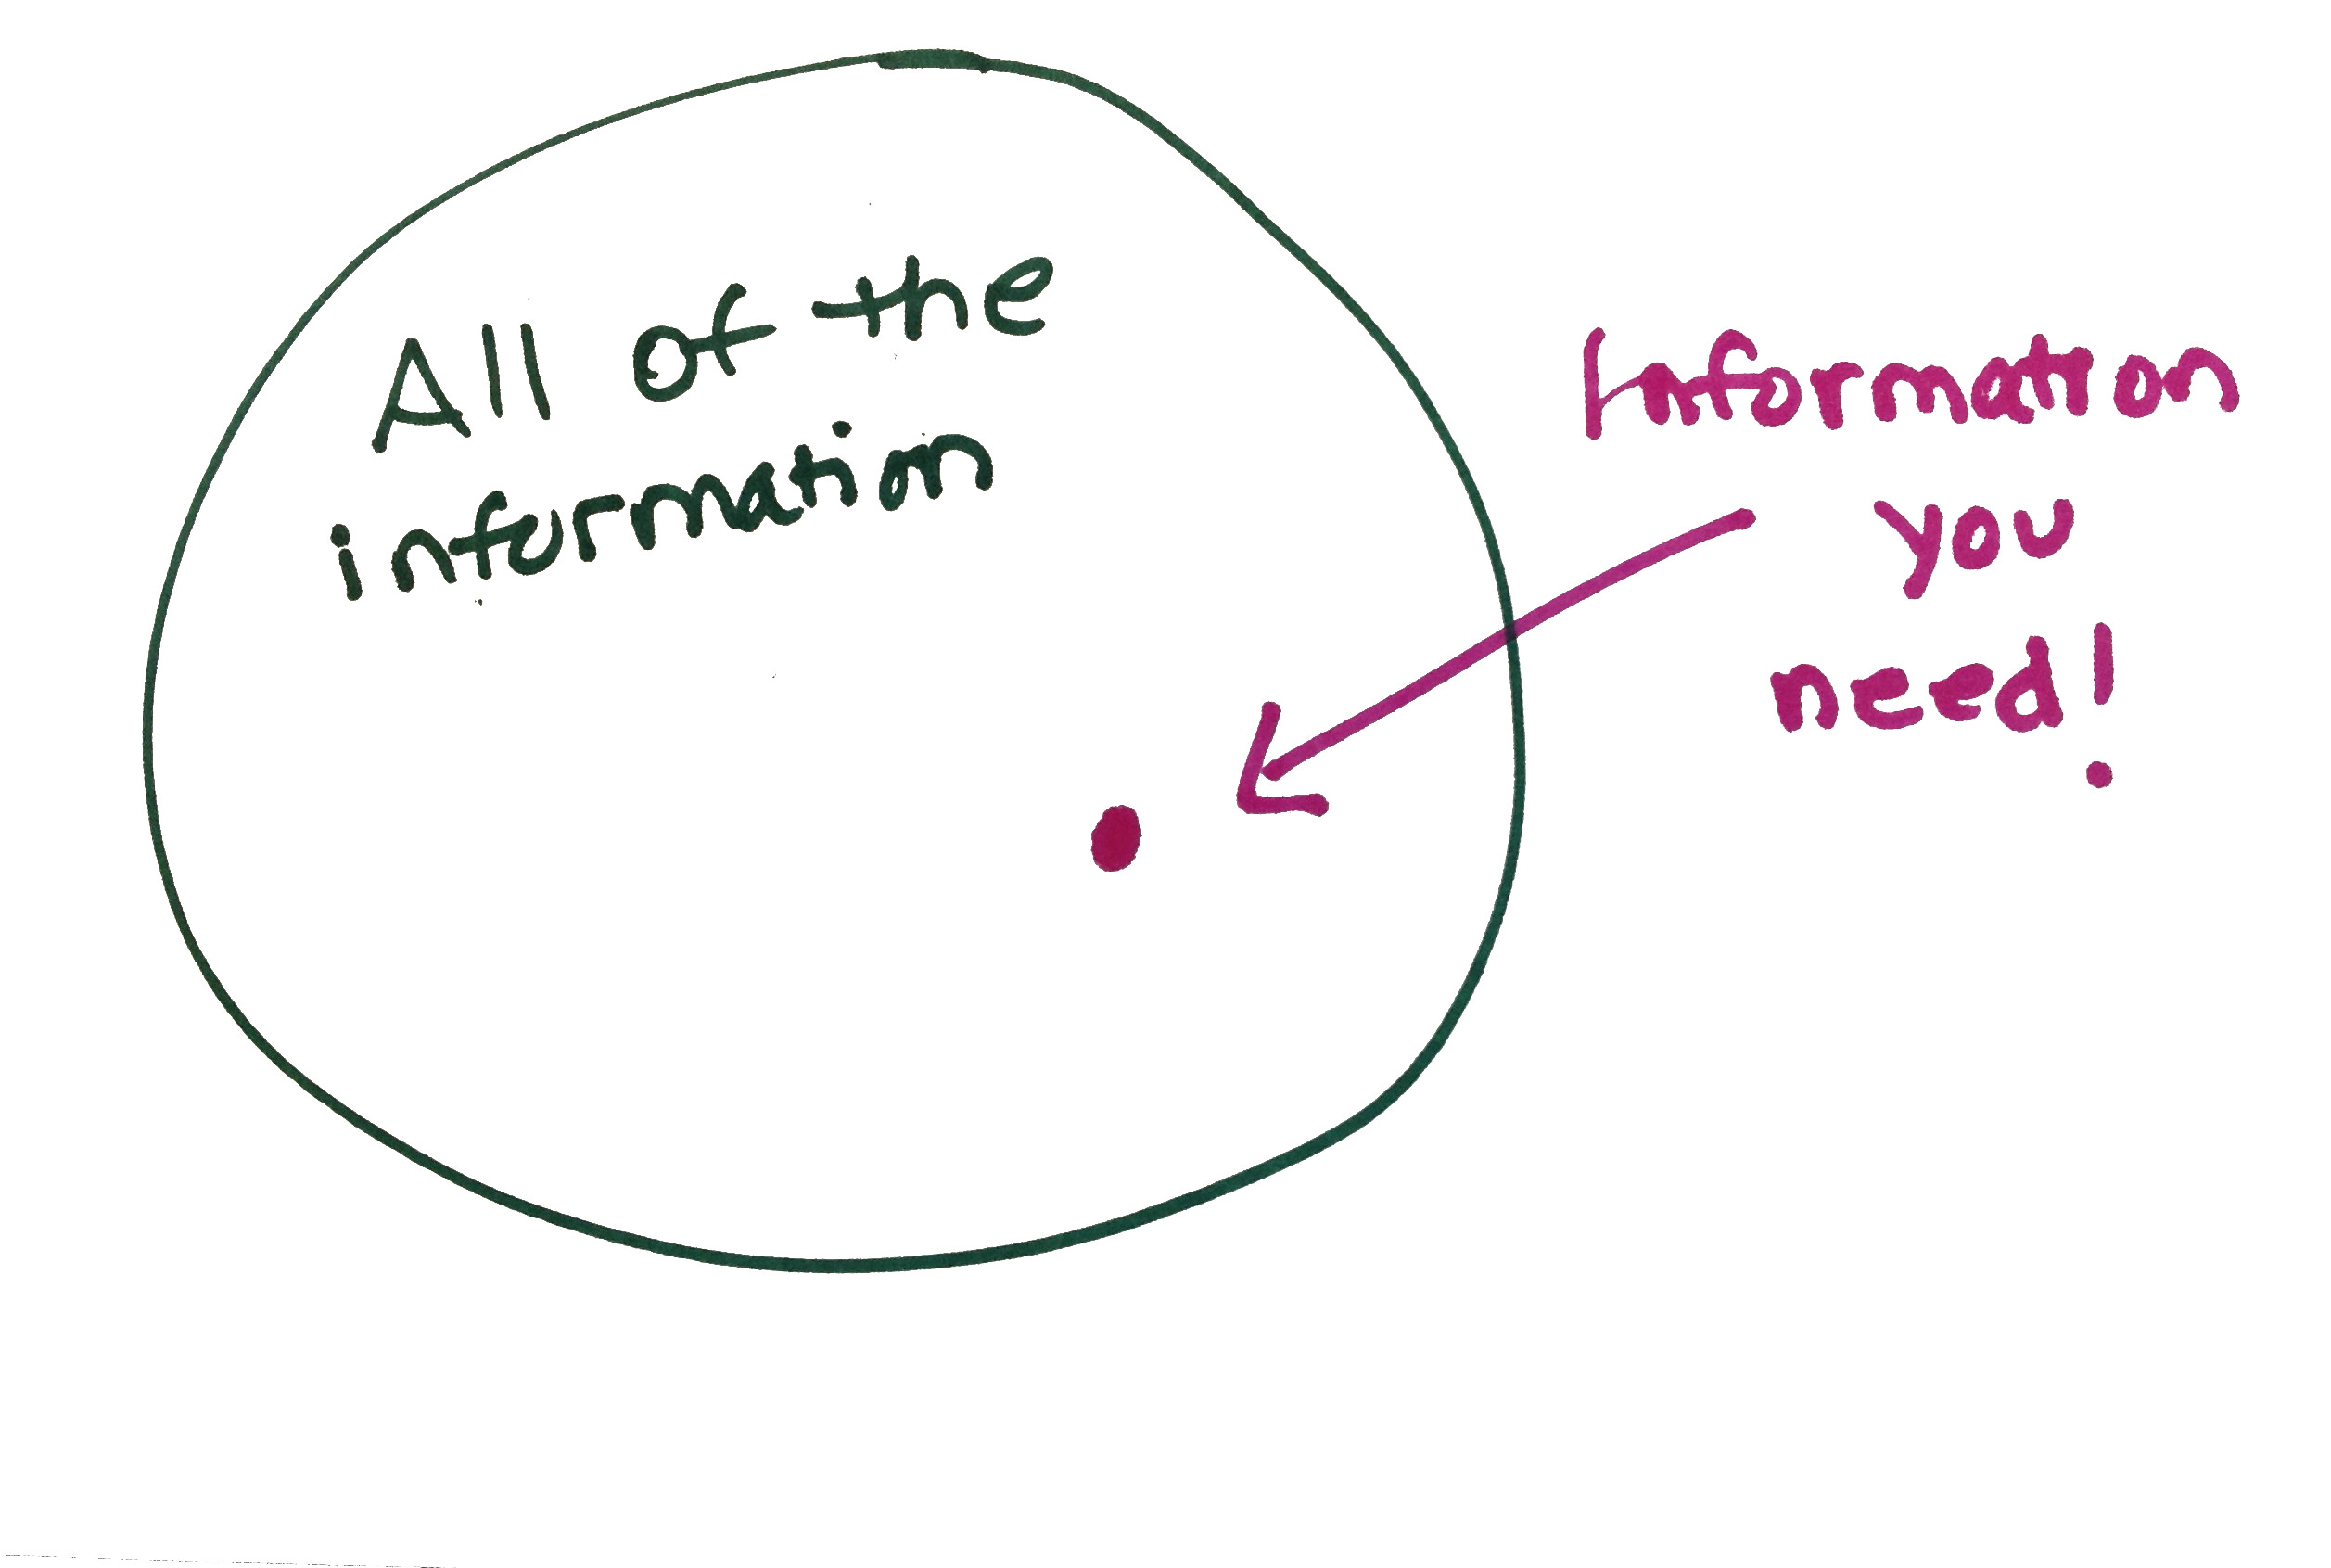 All of the
information
Information
you
need!